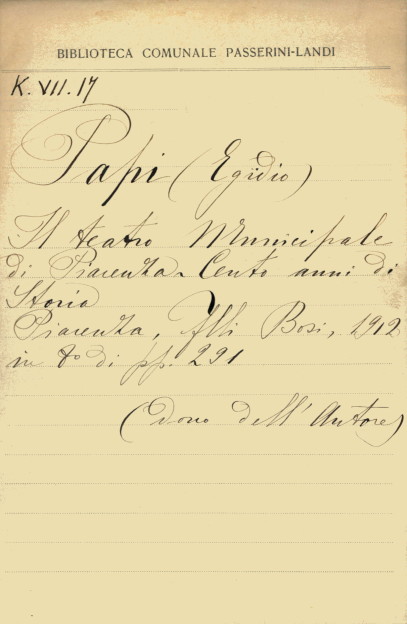 BIBLIOTECA COMUNALE PASSERINI-LANDI
K. VII. 17
Papi (Egidio)
Il teatro Municipale
di Piacenza - Cento anni di
Storia
Piacenza, Flli Bosi, 1912
in 8° di pp. 291
(dono dell'Autore)